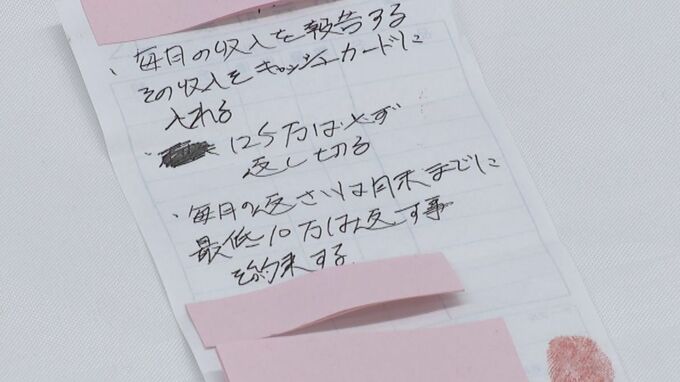 、毎月の収入を報告する
その収入をキャッシュカードに
入れる
・ 125万は必ず
返し切る
、毎月の返さいは月末までに
最低10万は返す事
を約束する